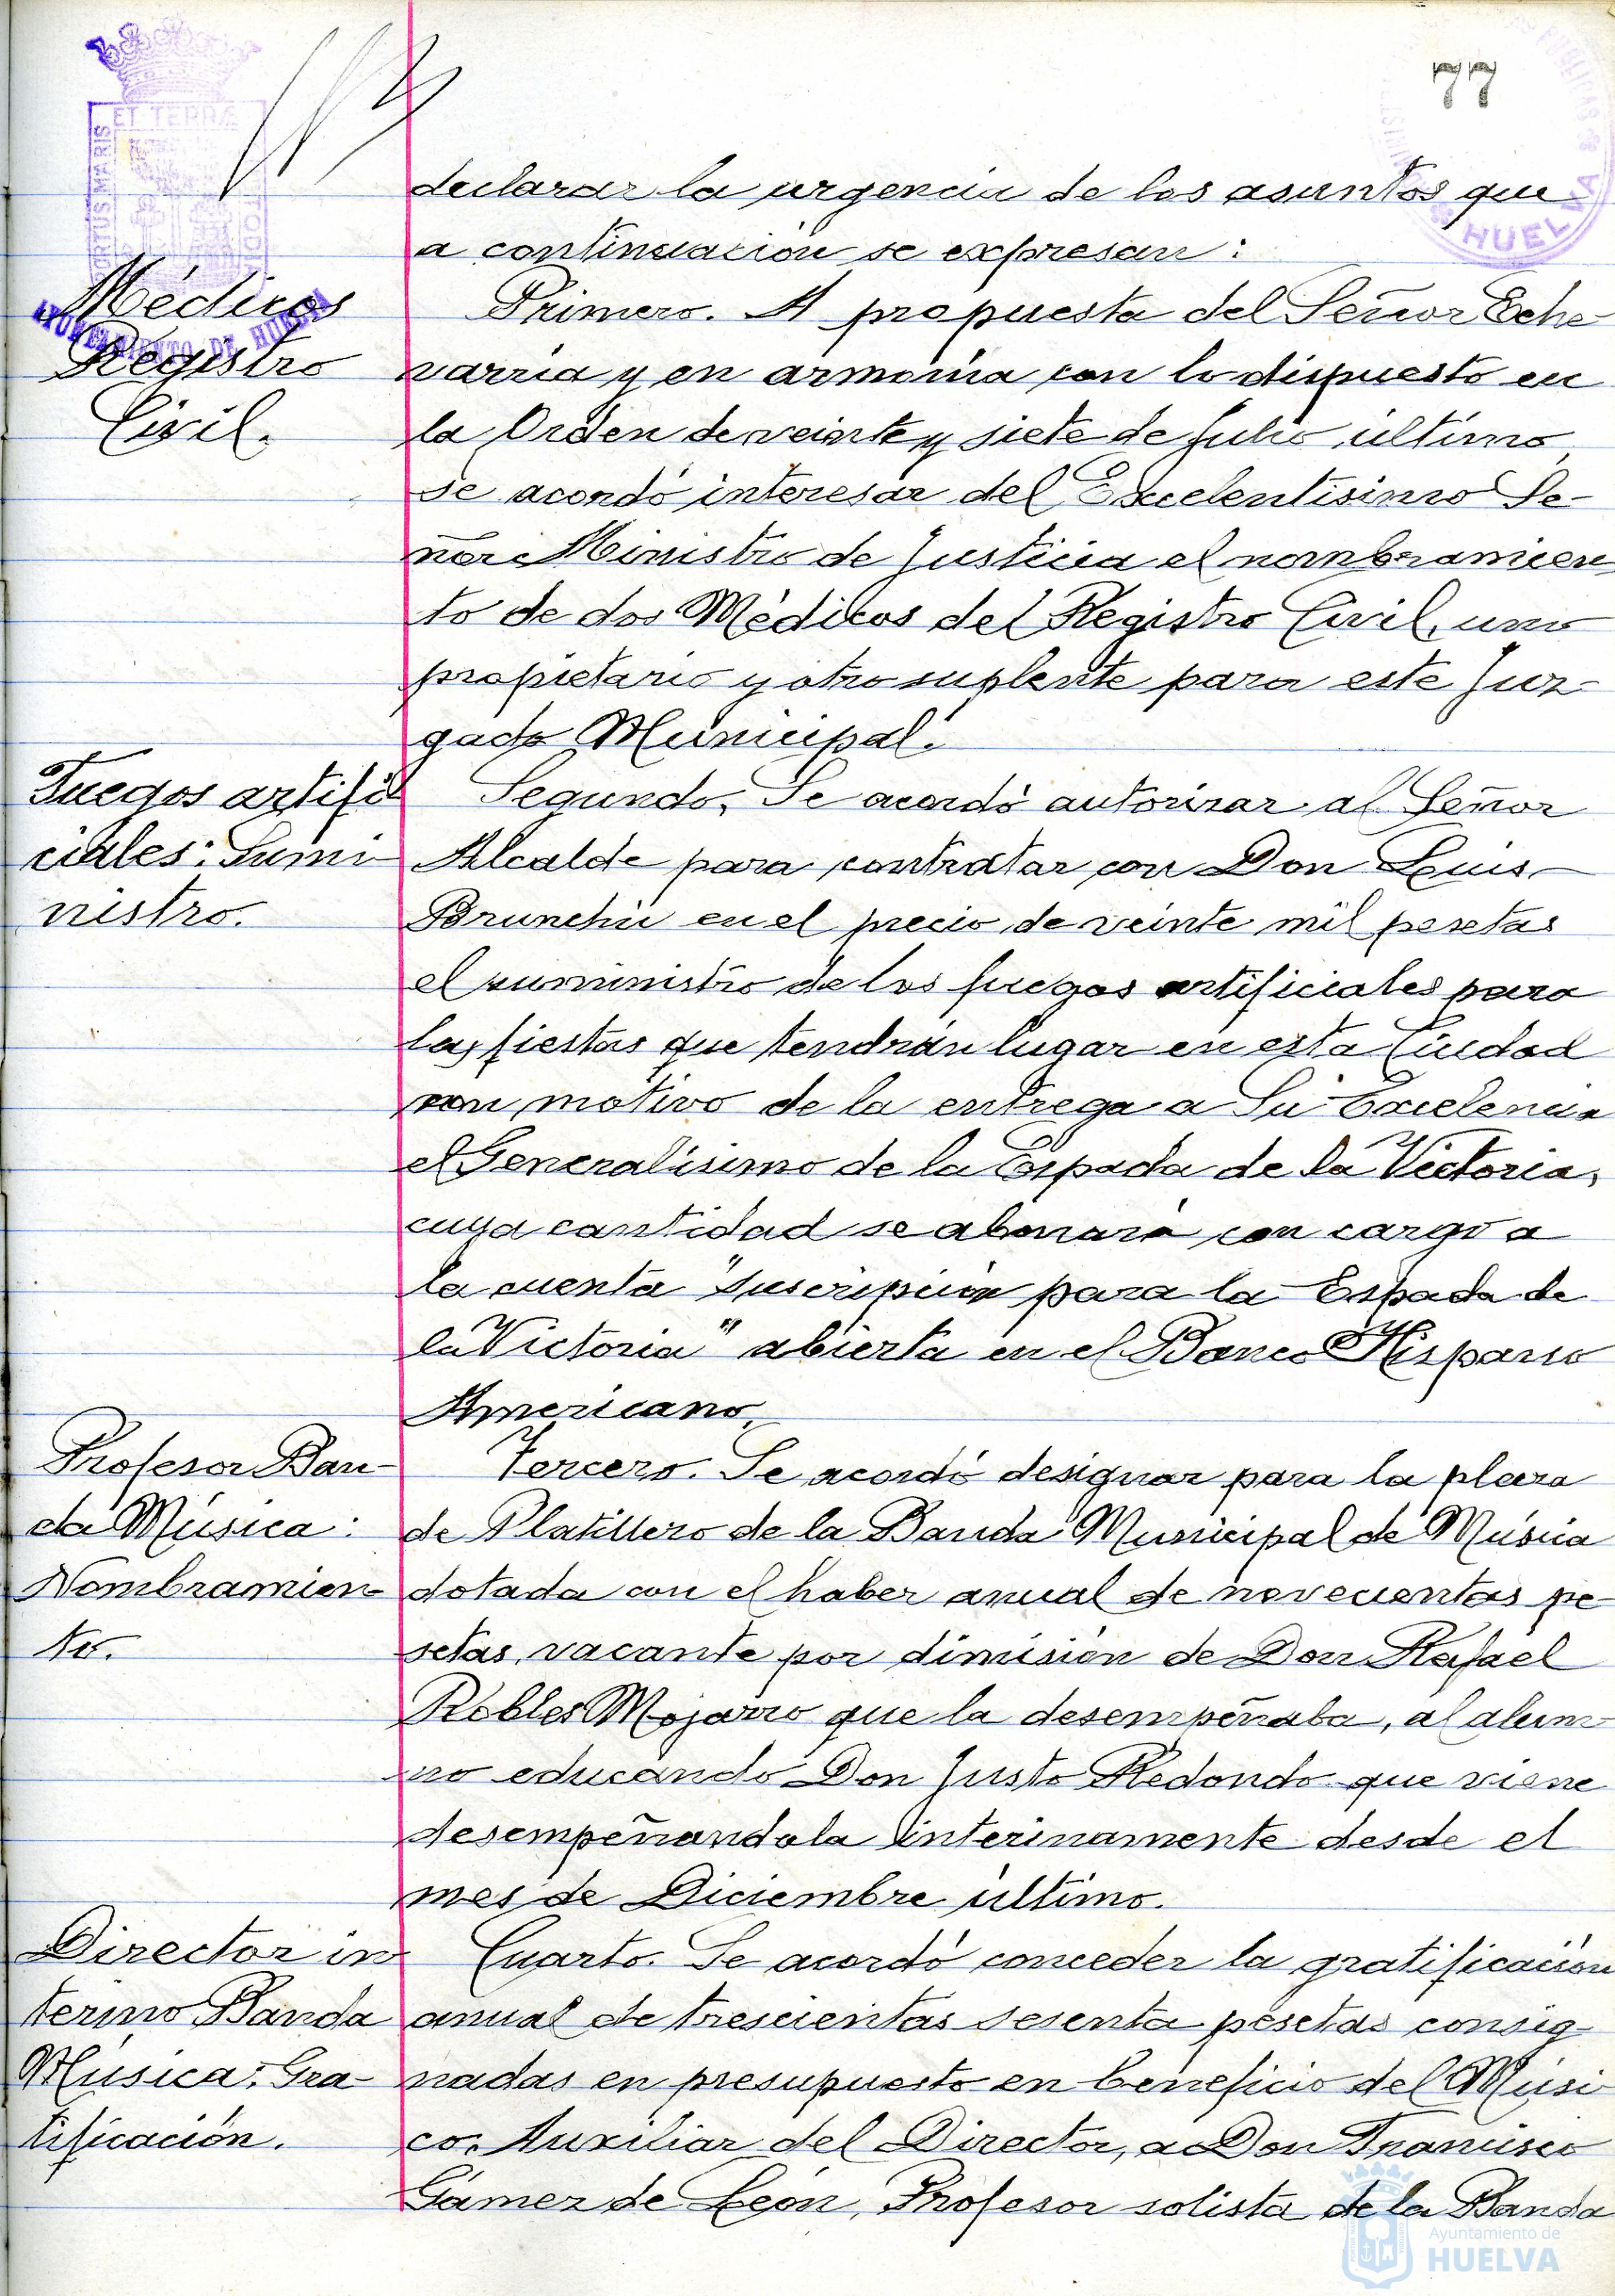 77
declarar la urgencia de los asuntos que
a continuación se expresan:
Médicos
Registro
Civil.
Primero. A propuesta del Señor Eche
varria y en armonia con lo dispuesto en
la Orden de veinte y siete de Julio último,
se acordó interesar del Excelentisimo Se-
ñor Ministro de Justicia el nombramien
to de dos Médicos del Registro Civil, uno
propietario y otro suplente para este Juz-
gado Municipal.
Fuegos artifi
ciales: Sumi-
nistro.
Segundo. Se acordó autorizar al Señor
Alcalde para contratar con Don Luis
en el precio de veinte mil pesetas
el suministro de los fuegos artificiales para
las fiestas que tendrán lugar en esta Ciudad
con motivo de la entrega a Su Excelencia
el Generalisimo de la Espada de la Victoria,
cuya cantidad se abonará con cargo a
la cuenta "Suscripción para la Espada de
la Victoria" abierta en el Banco Hispano
Americano.
Profesor Ban-
da Música:
Nombramien-
to.
Tercero. Se acordó designar para la plaza
de Platillero de la Banda Municipal de Música
dotada con el haber anual de novecientas pe-
setas, vacante por dimisión de Don Rafael
Robles Mojarro que la desempeñaba, al alum-
no educando Don Justo Redondo que viene
desempeñandola interinamente desde el
mes de Diciembre último.
Director in
terino Banda
Música: Gra-
tificación.
Cuarto. Se acordó conceder la gratificación
anual de trescientas sesenta pesetas consig-
nadas en presupuesto en beneficio del Músi
co, Auxiliar del Director, a Don Francisco
Gámez de León, Profesor solista de la Banda
ET TERRÆ
PORTUS MARIS
CUSTODIO
AYUNTAMIENTO DE HUELVA
HUELVA
Ayuntamiento de
HUELVA